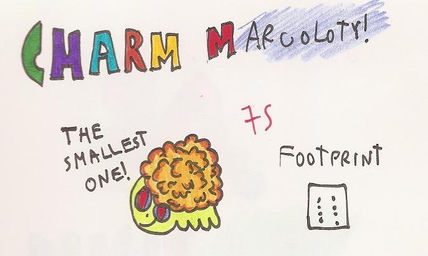 CHARM MARCOLOTY!
THE
SMALLEST
ONE!
75
FOOTPRINT